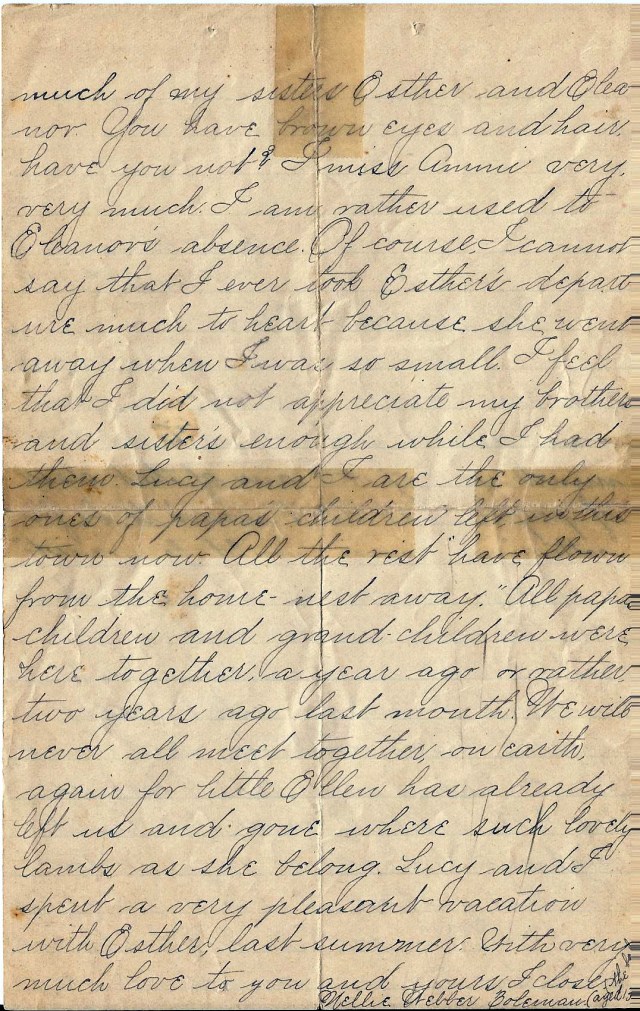 much of my sisters Esther and Elea-
nor. You have brown eyes and hair,
have you not? I miss Ammi very,
very much. I am rather used to
Eleanor's absence. Of course I cannot
say that I ever took Esther's depart
ure much to heart because she went
away when I was so small. I feel
that I did not appreciate my brothers
and sisters enough while I had
them. Lucy and I are the only
ones of papa's children left in this
town now. All the rest "have flown
from the home-nest away." All papa's
children and grand-children were
here together, a year ago or rather
two years ago last month. We will
never all meet together, on earth,
again for little Ellen has already
left us and gone where such lovely
lambs as she belong. Lucy and I
spent a very pleasant vacation
with Esther, last summer. With very
much love to you and yours I close,
Nellie Webber Boleman. (aged 15
the